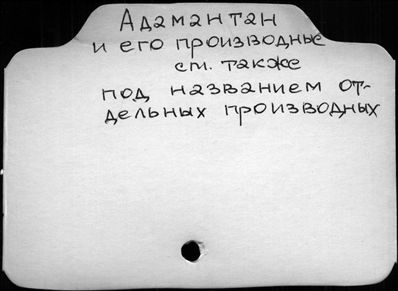 Адамантан
и его производные
см. также
под названием от-
дельных производных